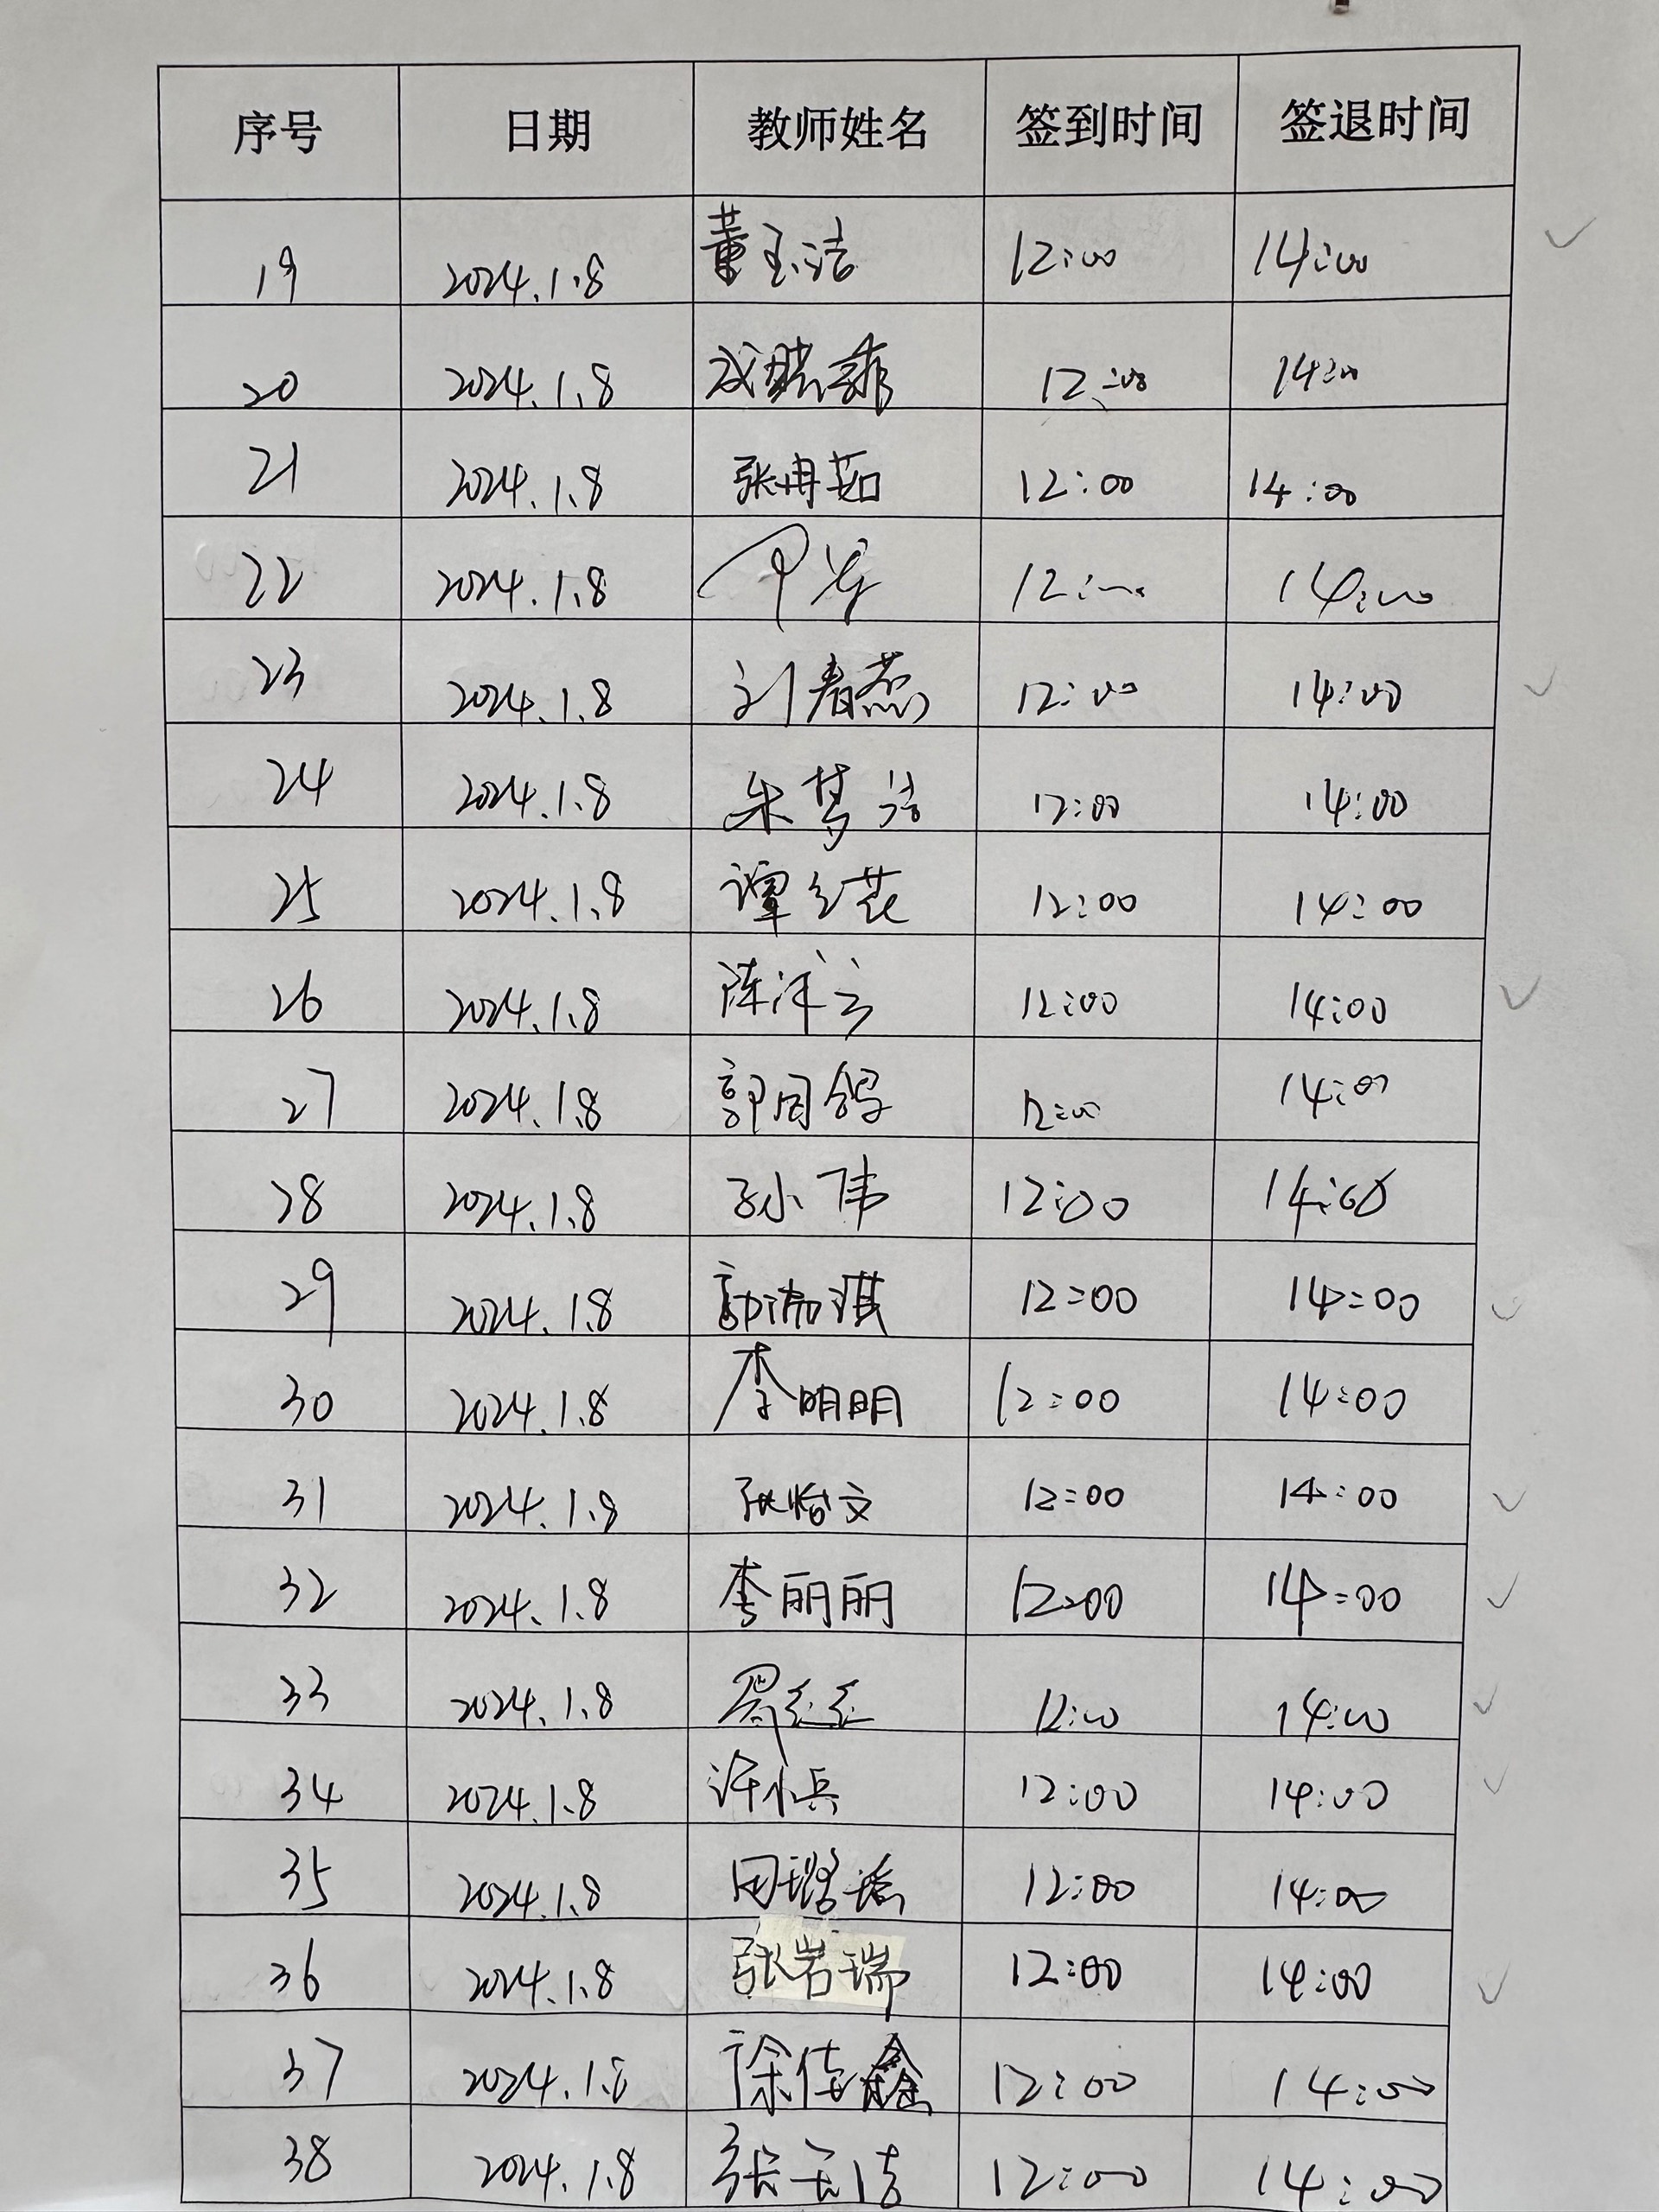 序号 日期 教师姓名 签到时间 签退时间
19 2024.1.8 董玉洁 12:00 14:00
20 2024.1.8 12:00 14:00
21 2024.1.8 张冉茹 12:00 14:00
22 2024.1.8 12:00 14:00
23 2024.1.8 刘春燕 12:00 14:00
24 2024.1.8 朱梦洁 12:00 14:00
25 2024.1.8 谭红花 12:00 14:00
26 2024.1.8 陈洋云 12:00 14:00
27 2024.1.8 郭同鸽 12:00 14:00
28 2024.1.8 孙小伟 12:00 14:00
29 2024.1.8 郭瑞琪 12:00 14:00
30 2024.1.8 李明明 12:00 14:00
31 2024.1.8 张怡文 12:00 14:00
32 2024.1.8 李丽丽 12:00 14:00
33 2024.1.8 12:00 14:00
34 2024.1.8 许小兵 12:00 14:00
35 2024.1.8 田璐瑶 12:00 14:00
36 2024.1.8 张岩瑞 12:00 14:00
37 2024.1.8 徐佳鑫 12:00 14:00
38 2024.1.8 张玉洁 12:00 14:00